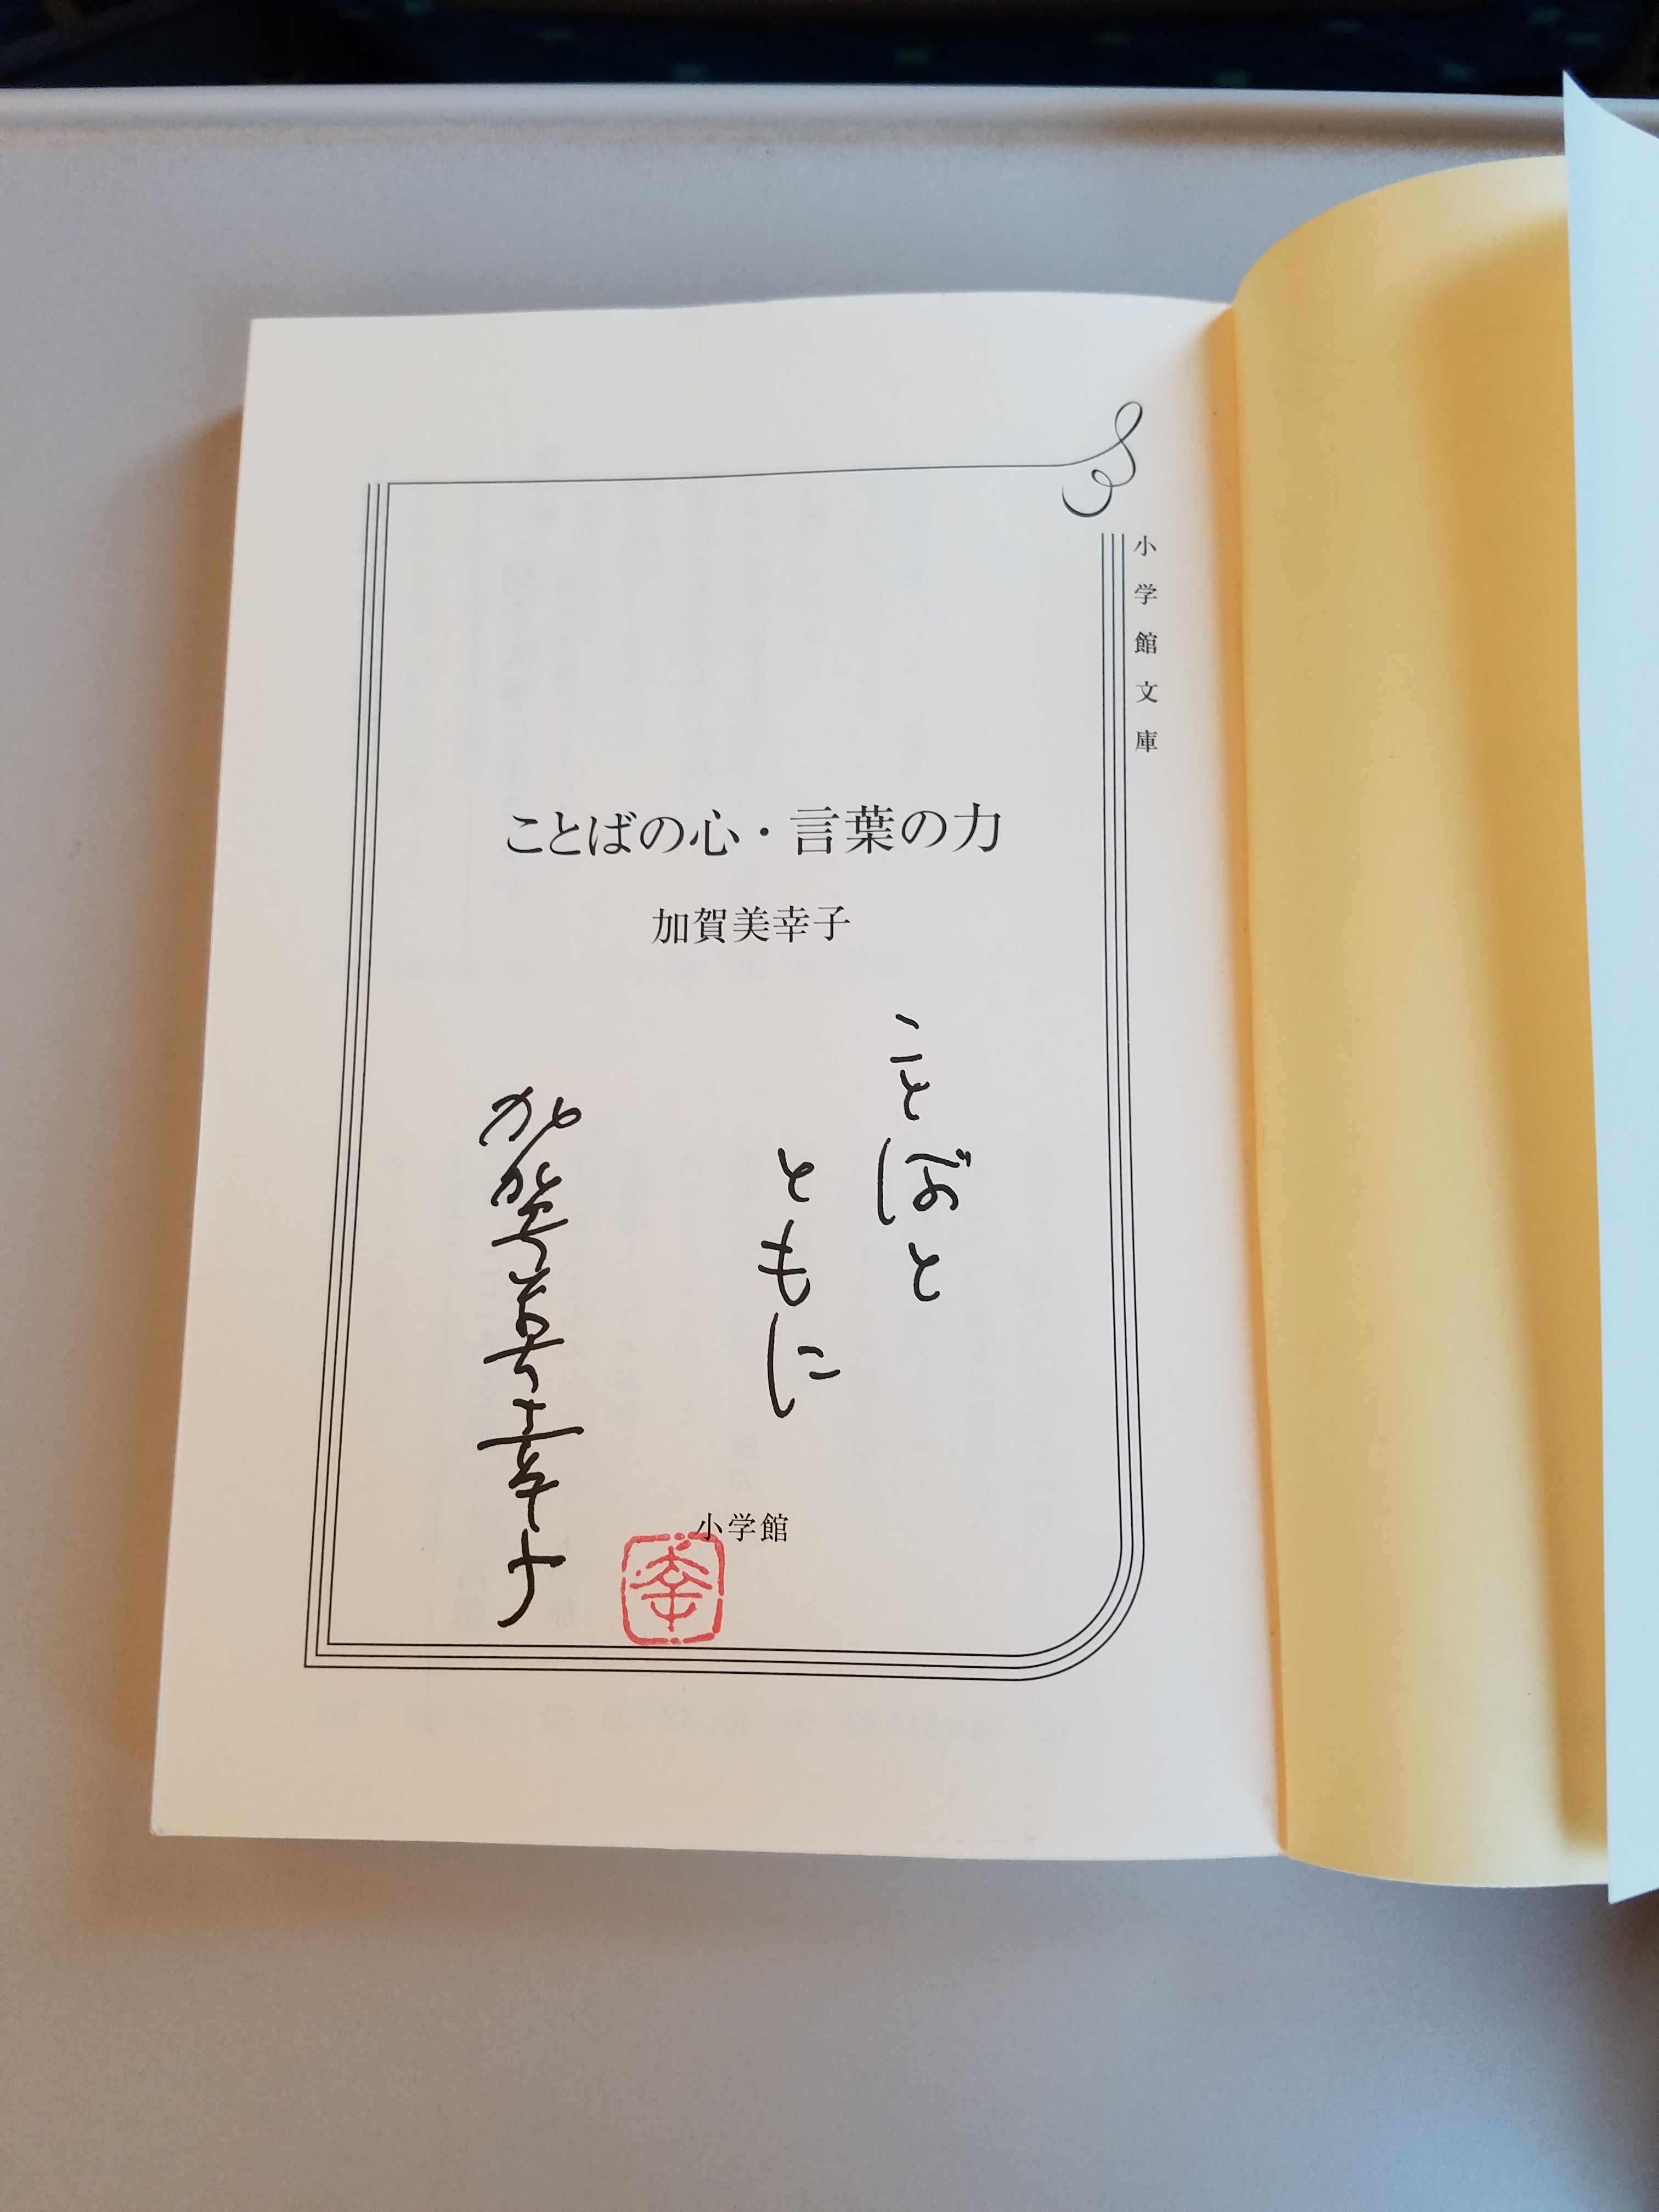 小学館文庫
ことばの心・言葉の力
加賀美幸子
ことばと
ともに
加賀美幸子
小学館
幸